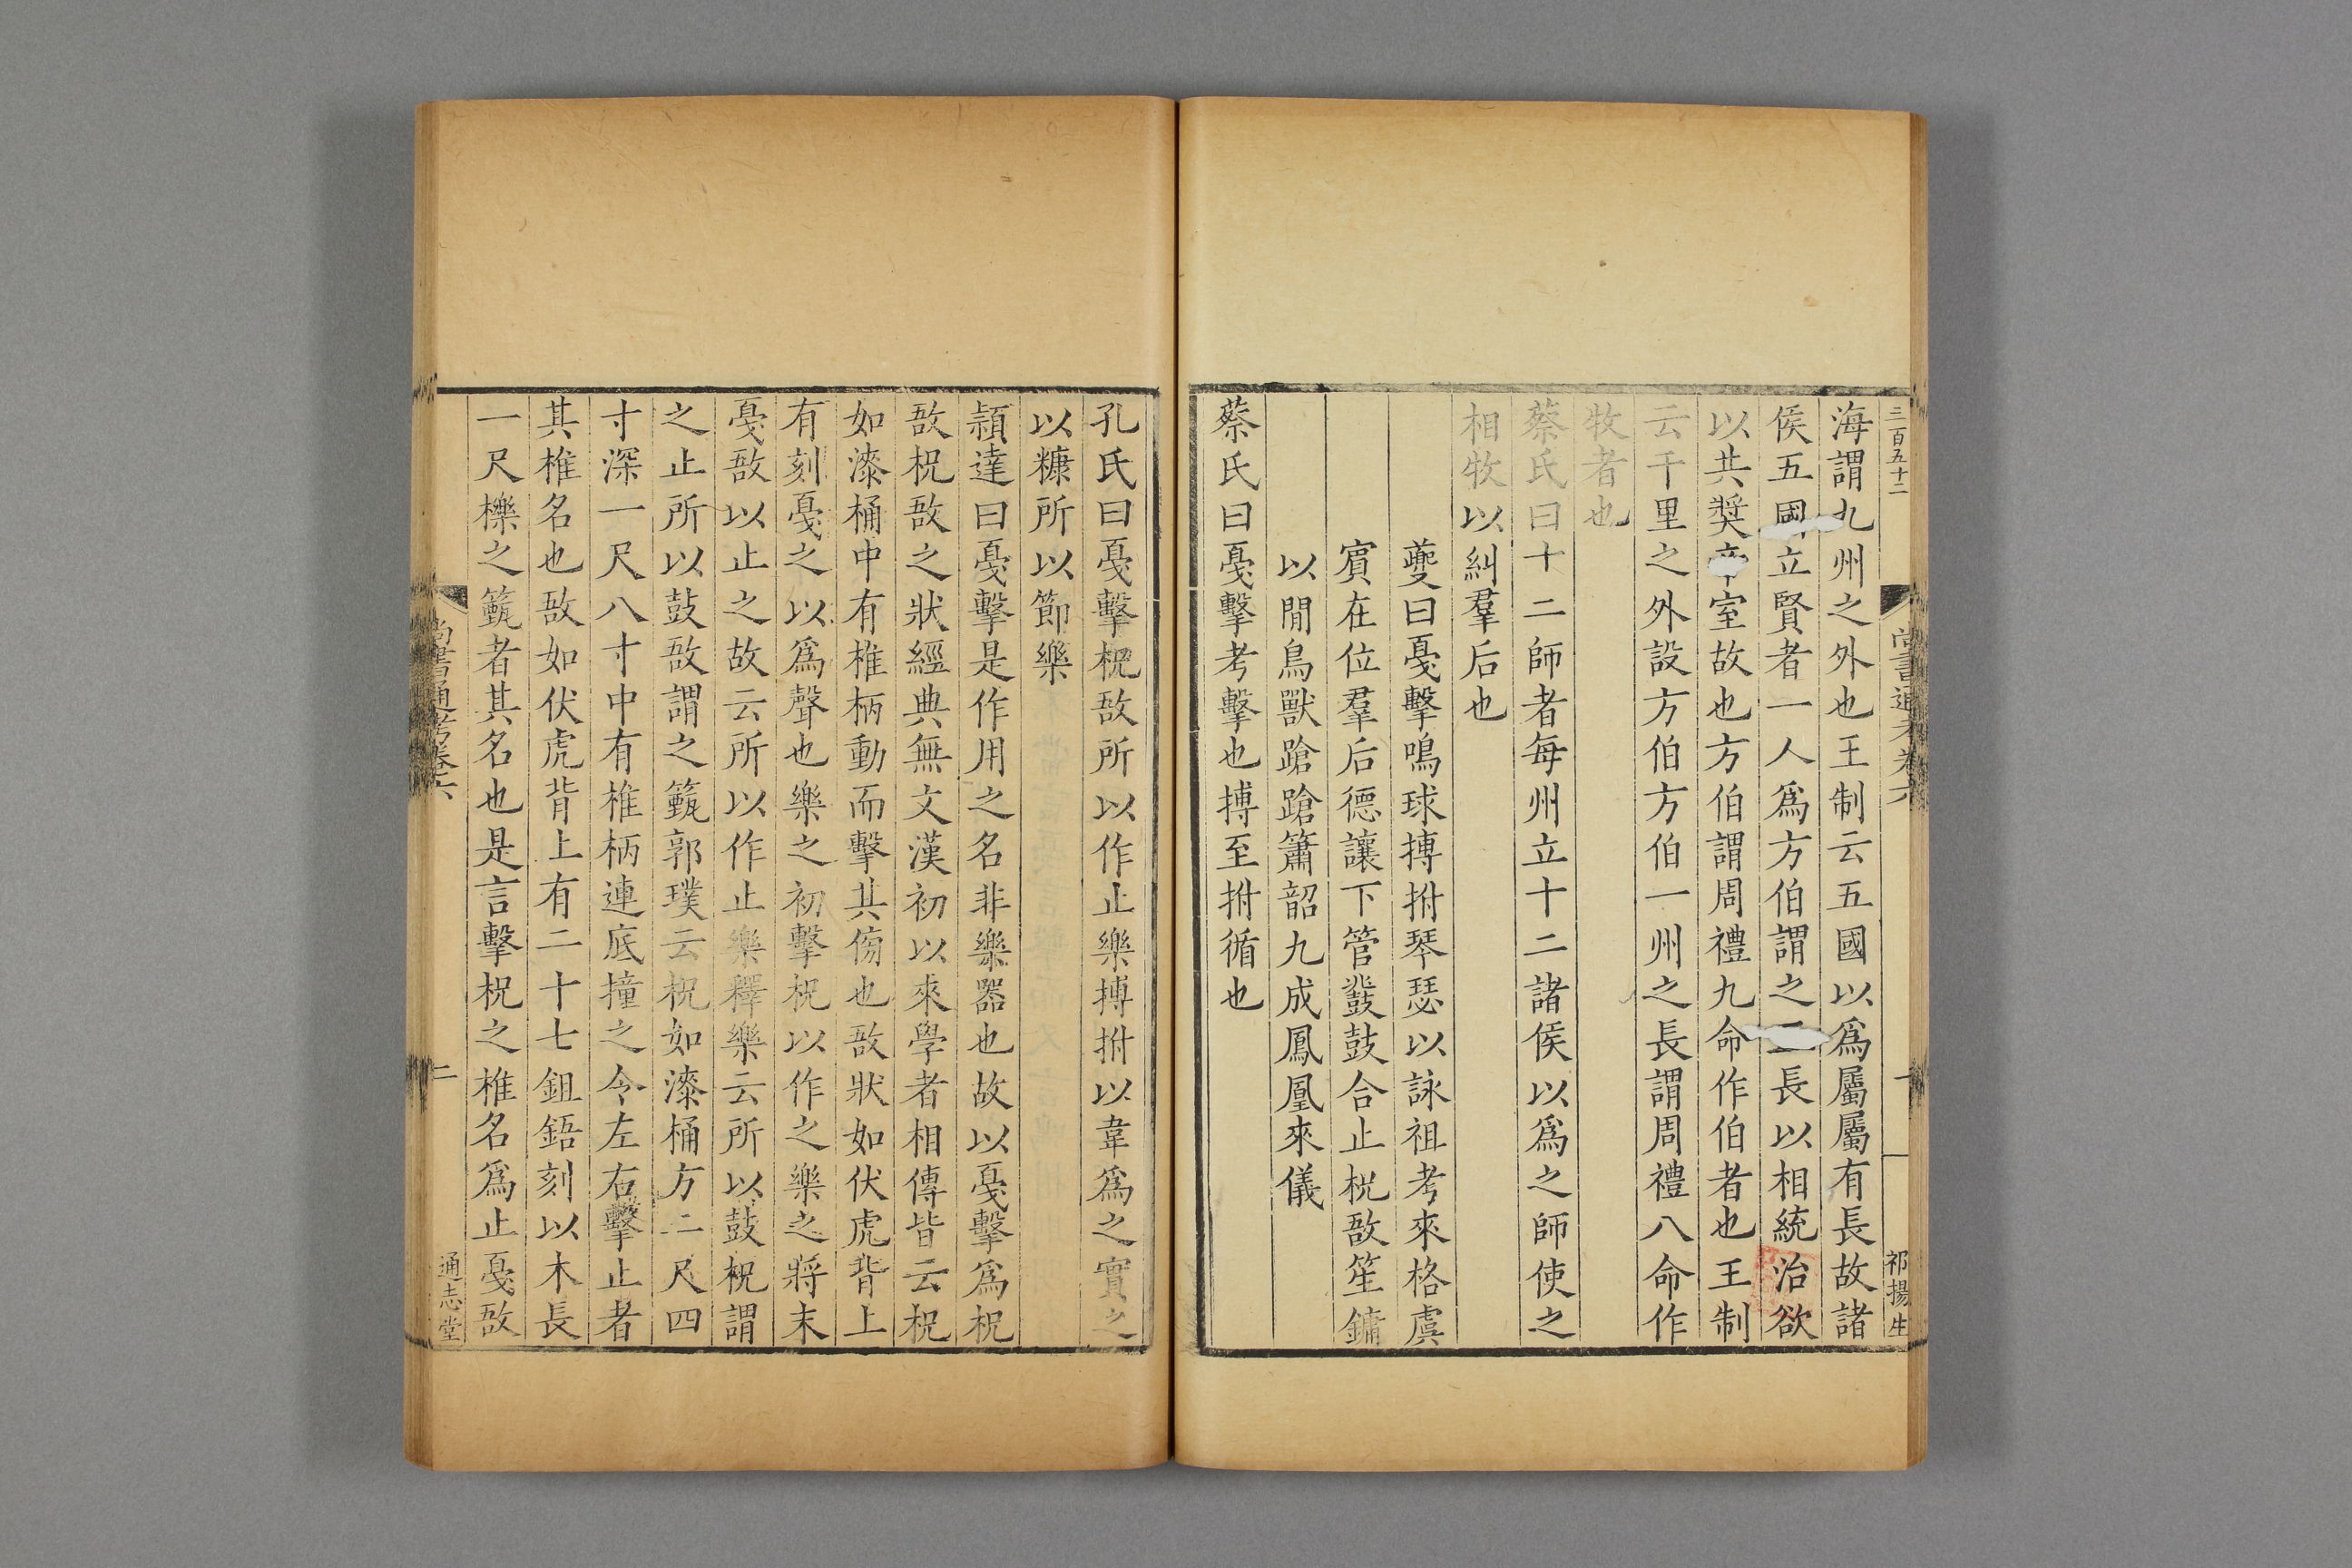 三百五十二
尚書通考卷六
一
祁揚生
海謂九州之外也王制云五國以爲屬屬有長故諸
侯五國立賢者一人爲方伯謂之五長以相統治欲
以共奬帝室故也方伯謂周禮九命作伯者也王制
云千里之外設方伯方伯一州之長謂周禮八命作
牧者也
蔡氏曰十二師者每州立十二諸侯以爲之師使之
相牧以糾羣后也
夔曰戛擊鳴球搏拊琴瑟以詠祖考來格虞
賓在位羣后德讓下管鼗鼓合止柷敔笙鏞
以閒鳥獸蹌蹌簫韶九成鳳凰來儀
蔡氏曰戛擊考擊也搏至拊循也
孔氏曰戛擊柷敔所以作止樂搏拊以韋爲之實之
以糠所以節樂
穎達曰戛擊是作用之名非樂器也故以戛擊爲柷
敔柷敔之狀經典無文漢初以來學者相傳皆云柷
如漆桶中有椎柄動而擊其傍也敔狀如伏虎背上
有刻戛之以爲聲也樂之初擊柷以作之樂之將末
戛敔以止之故云所以作止樂釋樂云所以鼓柷謂
之止所以鼓敔謂之籈郭璞云柷如漆桶方二尺四
寸深一尺八寸中有椎柄連底撞之令左右擊止者
其椎名也敔如伏虎背上有二十七鉏鋙刻以木長
一尺櫟之籈者其名也是言擊柷之椎名爲止戛敔
尚書通考卷六
二
通志堂